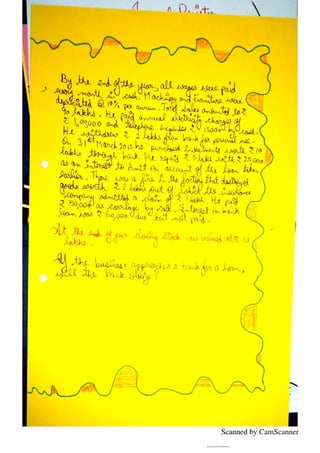 By the end of the year all wages were paid
every month in cash. Machinery and Furniture were
depreciated @ 10% per annum. Total sales amounted to ₹
90 lakhs. He paid annual electricity charges of
₹ 1,00,000 and telephone expenses ₹ by cash.
He withdrew ₹ 2 lakhs from bank for personal use.
On 31st March 2013 he purchased investments worth ₹ 10
lakhs through bank. He repaid ₹ 3 lakh with ₹ 20000
as an interest to Amit on account of the loan taken
earlier. There was a fire in the factory that destroyed
goods worth ₹ 2 lakhs out of which the insurance
company admitted a claim of ₹ 1 lakh. He paid
₹ 50,000 as carriage by cash. Interest on bank
loan was ₹ 60,000 due but not paid.
At the end of year closing stock was valued at ₹ 10
lakhs.
If the business approaches a bank for a loan,
will the bank oblige?
Scanned by CamScanner